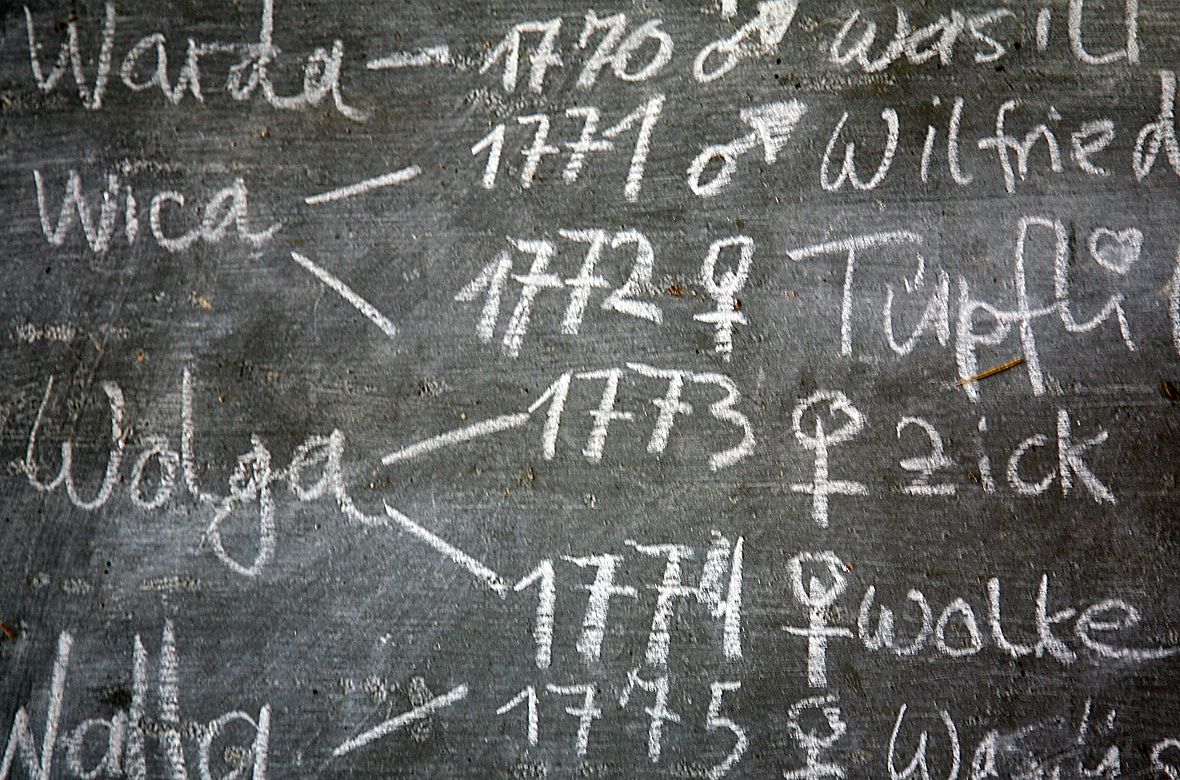 Warda — 1770 ♂ Wasil
1771 ♂ Wilfried
Wica
1772 ♀ Tüpfli
Wolga 1773 ♀ Zick
1774 ♀ Wolke
1775 ♀